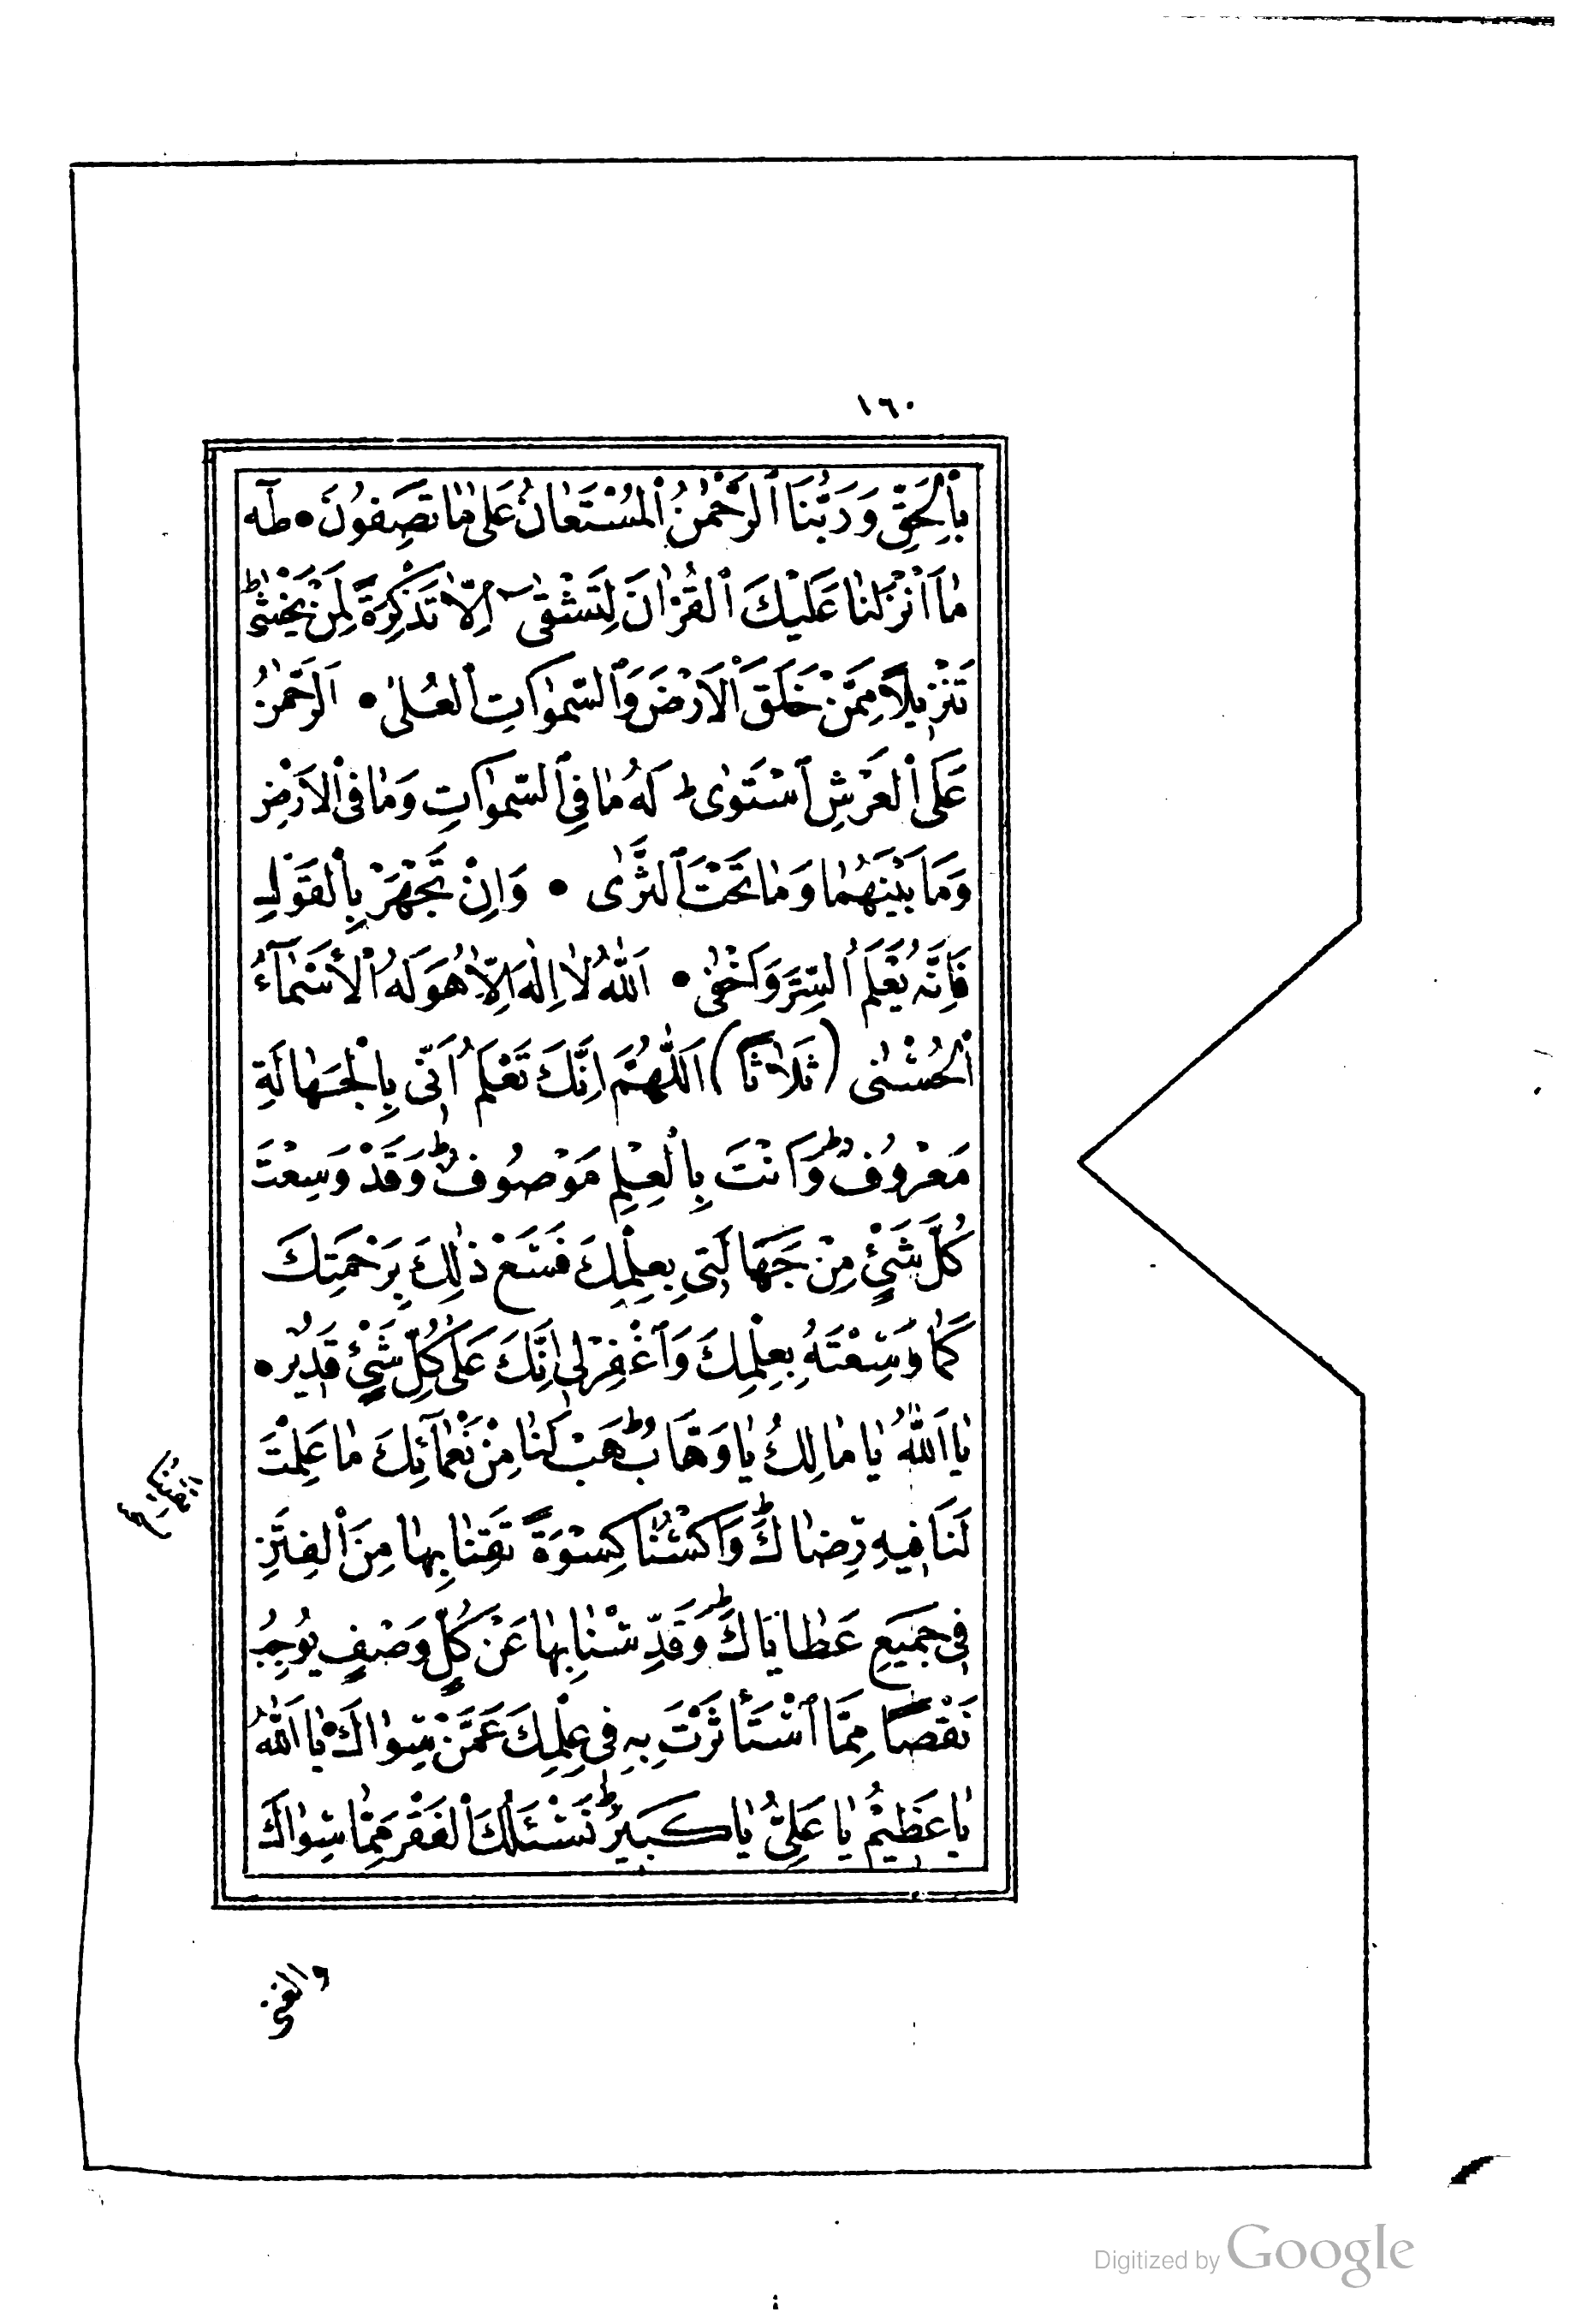 ١٦٠
بِالْحَقِّ وَرَبُّنَا الرَّحْمٰنُ الْمُسْتَعَانُ عَلٰى مَا تَصِفُونَ • طٰهٓ
مَا اَنْزَلْنَا عَلَيْكَ الْقُرْاٰنَ لِتَشْقٰى اِلَّا تَذْكِرَةً لِمَنْ يَخْشٰىط
تَنْزِيلًا مِمَّنْ خَلَقَ الْاَرْضَ وَالسَّمٰوَاتِ الْعُلٰى • اَلرَّحْمٰنُ
عَلَى الْعَرْشِ اسْتَوٰىط لَهُ مَا فِي السَّمٰوَاتِ وَمَا فِي الْاَرْضِ
وَمَا بَيْنَهُمَا وَمَا تَحْتَ الثَّرٰى • وَاِنْ تَجْهَرْ بِالْقَوْلِ
فَاِنَّهُ يَعْلَمُ السِّرَّ وَاَخْفٰى • اَللّٰهُ لَا اِلٰهَ اِلَّا هُوَ لَهُ الْاَسْمَآءُ
الْحُسْنٰى (ثَلَاثًا) اَللّٰهُمَّ اِنَّكَ تَعْلَمُ اَنّٖى بِالْجَهَالَةِ
مَعْرُوفٌط وَاَنْتَ بِالْعِلْمِ مَوْصُوفٌط وَقَدْ وَسِعْتَ
كُلَّ شَيْئٍ مِنْ جَهَالَتِي بِعِلْمِكَ فَسَعْ ذٰلِكَ بِرَحْمَتِكَ
كَمَا وَسِعْتَهُ بِعِلْمِكَ وَاغْفِرْ لِي اِنَّكَ عَلٰى كُلِّ شَيْئٍ قَدِيرٌ •
يَا اَللّٰهُ يَا مَالِكُ يَا وَهَّابُط هَبْ لَنَا مِنْ نَعْمَآئِكَ مَا عَلِمْتَ
لَنَا فِيهِ رِضَاكَط وَاكْسُنَا كِسْوَةً تَقِنَا بِهَا مِنَ الْفِتَنِ
فِي جَمِيعِ عَطَايَاكَط وَقَدِّسْنَا بِهَا عَنْ كُلِّ وَصْفٍ يُوجِبُ
نَقْصًا مِمَّا اسْتَأْثَرْتَ بِهِ فِي عِلْمِكَ عَمَّنْ سِوَاكَ • يَا اَللّٰهُ
يَا عَظِيمُ يَا عَلِيُّ يَا كَبِيرُط نَسْئَلُكَ الْفَقْرَ مِمَّا سِوَاكَ
والغنى
Digitized by Google